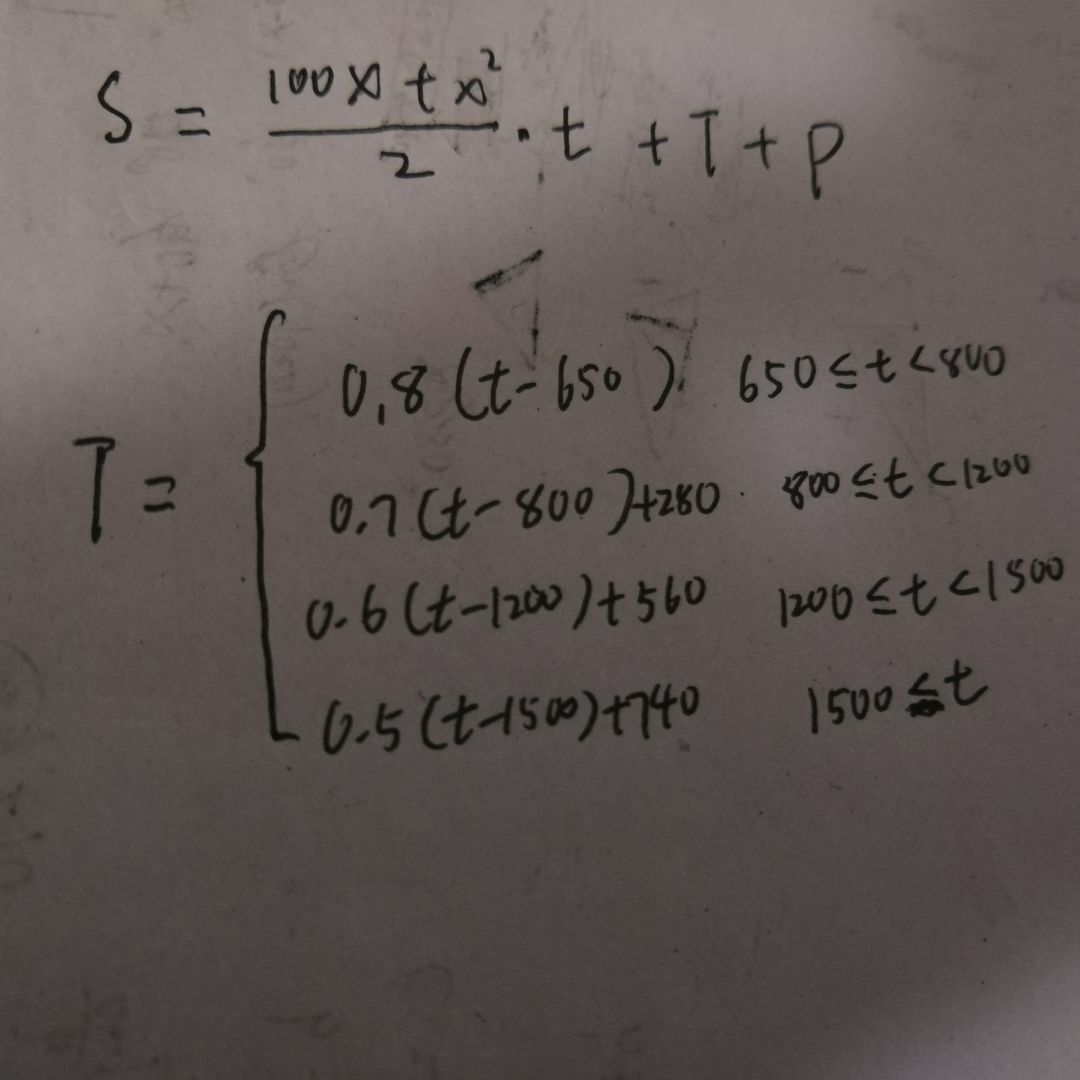 S = \frac{100x + x^2}{2} \cdot t + T + P
T = {
0.8(t-650) 650 ≤ t < 800
0.7(t-800)+280 800 ≤ t < 1200
0.6(t-1200)+560 1200 ≤ t < 1500
0.5(t-1500)+740 1500 ≤ t